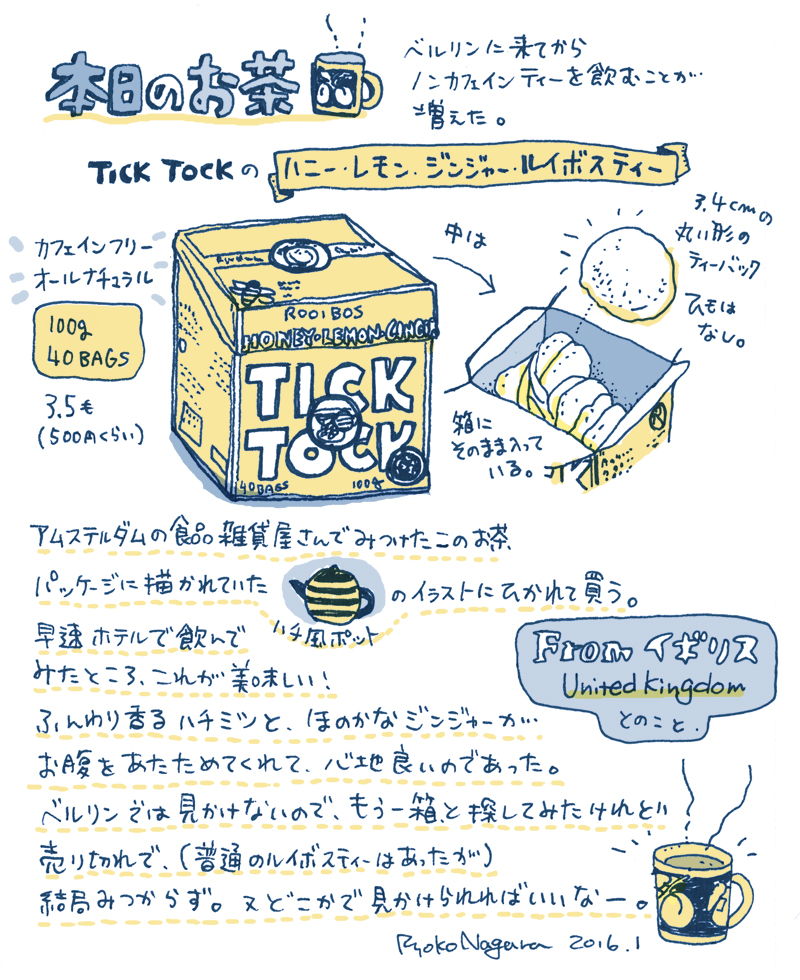 本日のお茶
ベルリンに来てから
ノンカフェインティーを飲むことが
増えた。
TICK TOCKの ハニー・レモン・ジンジャー・ルイボスティー
カフェインフリー
オールナチュラル
100g
40 BAGS
3.5€
(500円くらい)
ROOIBOS
HONEY・LEMON・GINGER
TICK
TOCK
40 BAGS 100g
中は
3.4cmの
丸い形の
ティーバック
ひもは
なし。
箱に
そのまま入って
いる。
アムステルダムの食品雑貨屋さんでみつけたこのお茶、
パッケージに描かれていた
ハチ風ポット
のイラストにひかれて買う。
早速ホテルで飲んで
みたところ、これが美味しい!
ふんわり香るハチミツと、ほのかなジンジャーが
お腹をあたためてくれて、心地良いのであった。
ベルリンでは見かけないので、もう一箱、と探してみたけれど
売り切れで、(普通のルイボスティーはあったが)
結局みつからず。又どこかで見かけられればいいなー。
From イギリス
United Kingdom
とのこと.
Ryoko Nagara 2016.1